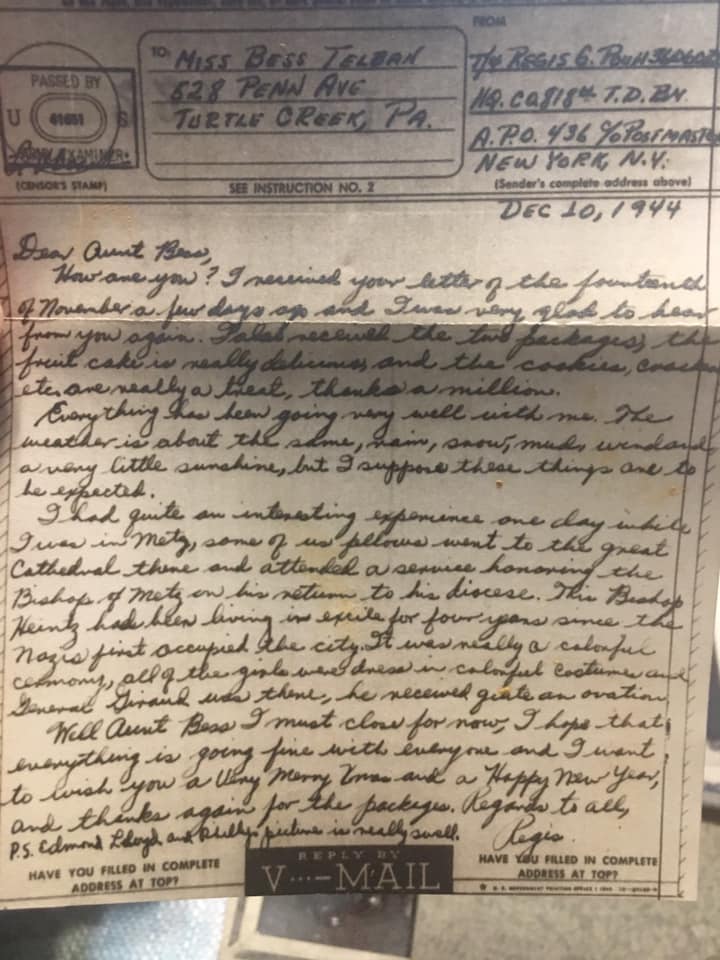 FROM
TO: MISS BESS TELBAN
528 PENN AVE
TURTLE CREEK, PA.
T/4 REGIS G.
HQ. CO 818th T.D. BN.
A.P.O. 436 c/o POSTMASTER
NEW YORK, N.Y.
PASSED BY
U S
ARMY EXAMINER
(CENSOR'S STAMP)
SEE INSTRUCTION NO. 2
(Sender's complete address above)
DEC 10, 1944
Dear Aunt Bess,
How are you? I received your letter of the fourteenth
of November a few days ago and I was very glad to hear
from you again. I also received the two packages, the
fruit cake is really delicious, and the cookies,
etc. are really a treat, thanks a million.
Everything has been going very well with me. The
weather is about the same, rain, snow, mud, wind and
a very little sunshine, but I suppose these things are to
be expected.
I had quite an interesting experience one day while
I was in Metz, some of us fellows went to the great
Cathedral there and attended a service honoring the
Bishop of Metz on his return to his diocese. This Bishop
Heintz had been living in exile for four years since the
Nazis first occupied the city. It was really a colorful
ceremony, all of the girls were dress in colorful costumes and
General Giraud was there, he received quite an ovation
Well Aunt Bess I must close for now, I hope that
everything is going fine with everyone and I want
to wish you a Very Merry Xmas and a Happy New Year,
and thanks again for the packages. Regards to all,
Regis
P.S. Edmond Lloyd and Phillip's picture is really swell.
HAVE YOU FILLED IN COMPLETE
ADDRESS AT TOP?
REPLY BY
V···—MAIL
HAVE YOU FILLED IN COMPLETE
ADDRESS AT TOP?